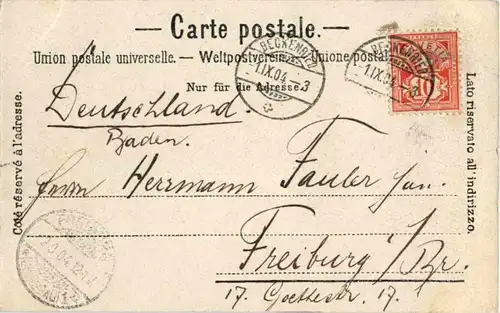 Carte postale.
Union postale universelle. — Weltpostverein. — Unione postale
Nur für die Adresse.
BECKENRIED
1.IX.04 - 3
BECKENRIED
1.IX.04 - 3
10
Côté réservé à l'adresse.
Lato riservato all'indirizzo.
Deutschland.
Baden.
Herrn Herrmann Fauler jun.
Freiburg i/Br.
17. Goethestr. 17.